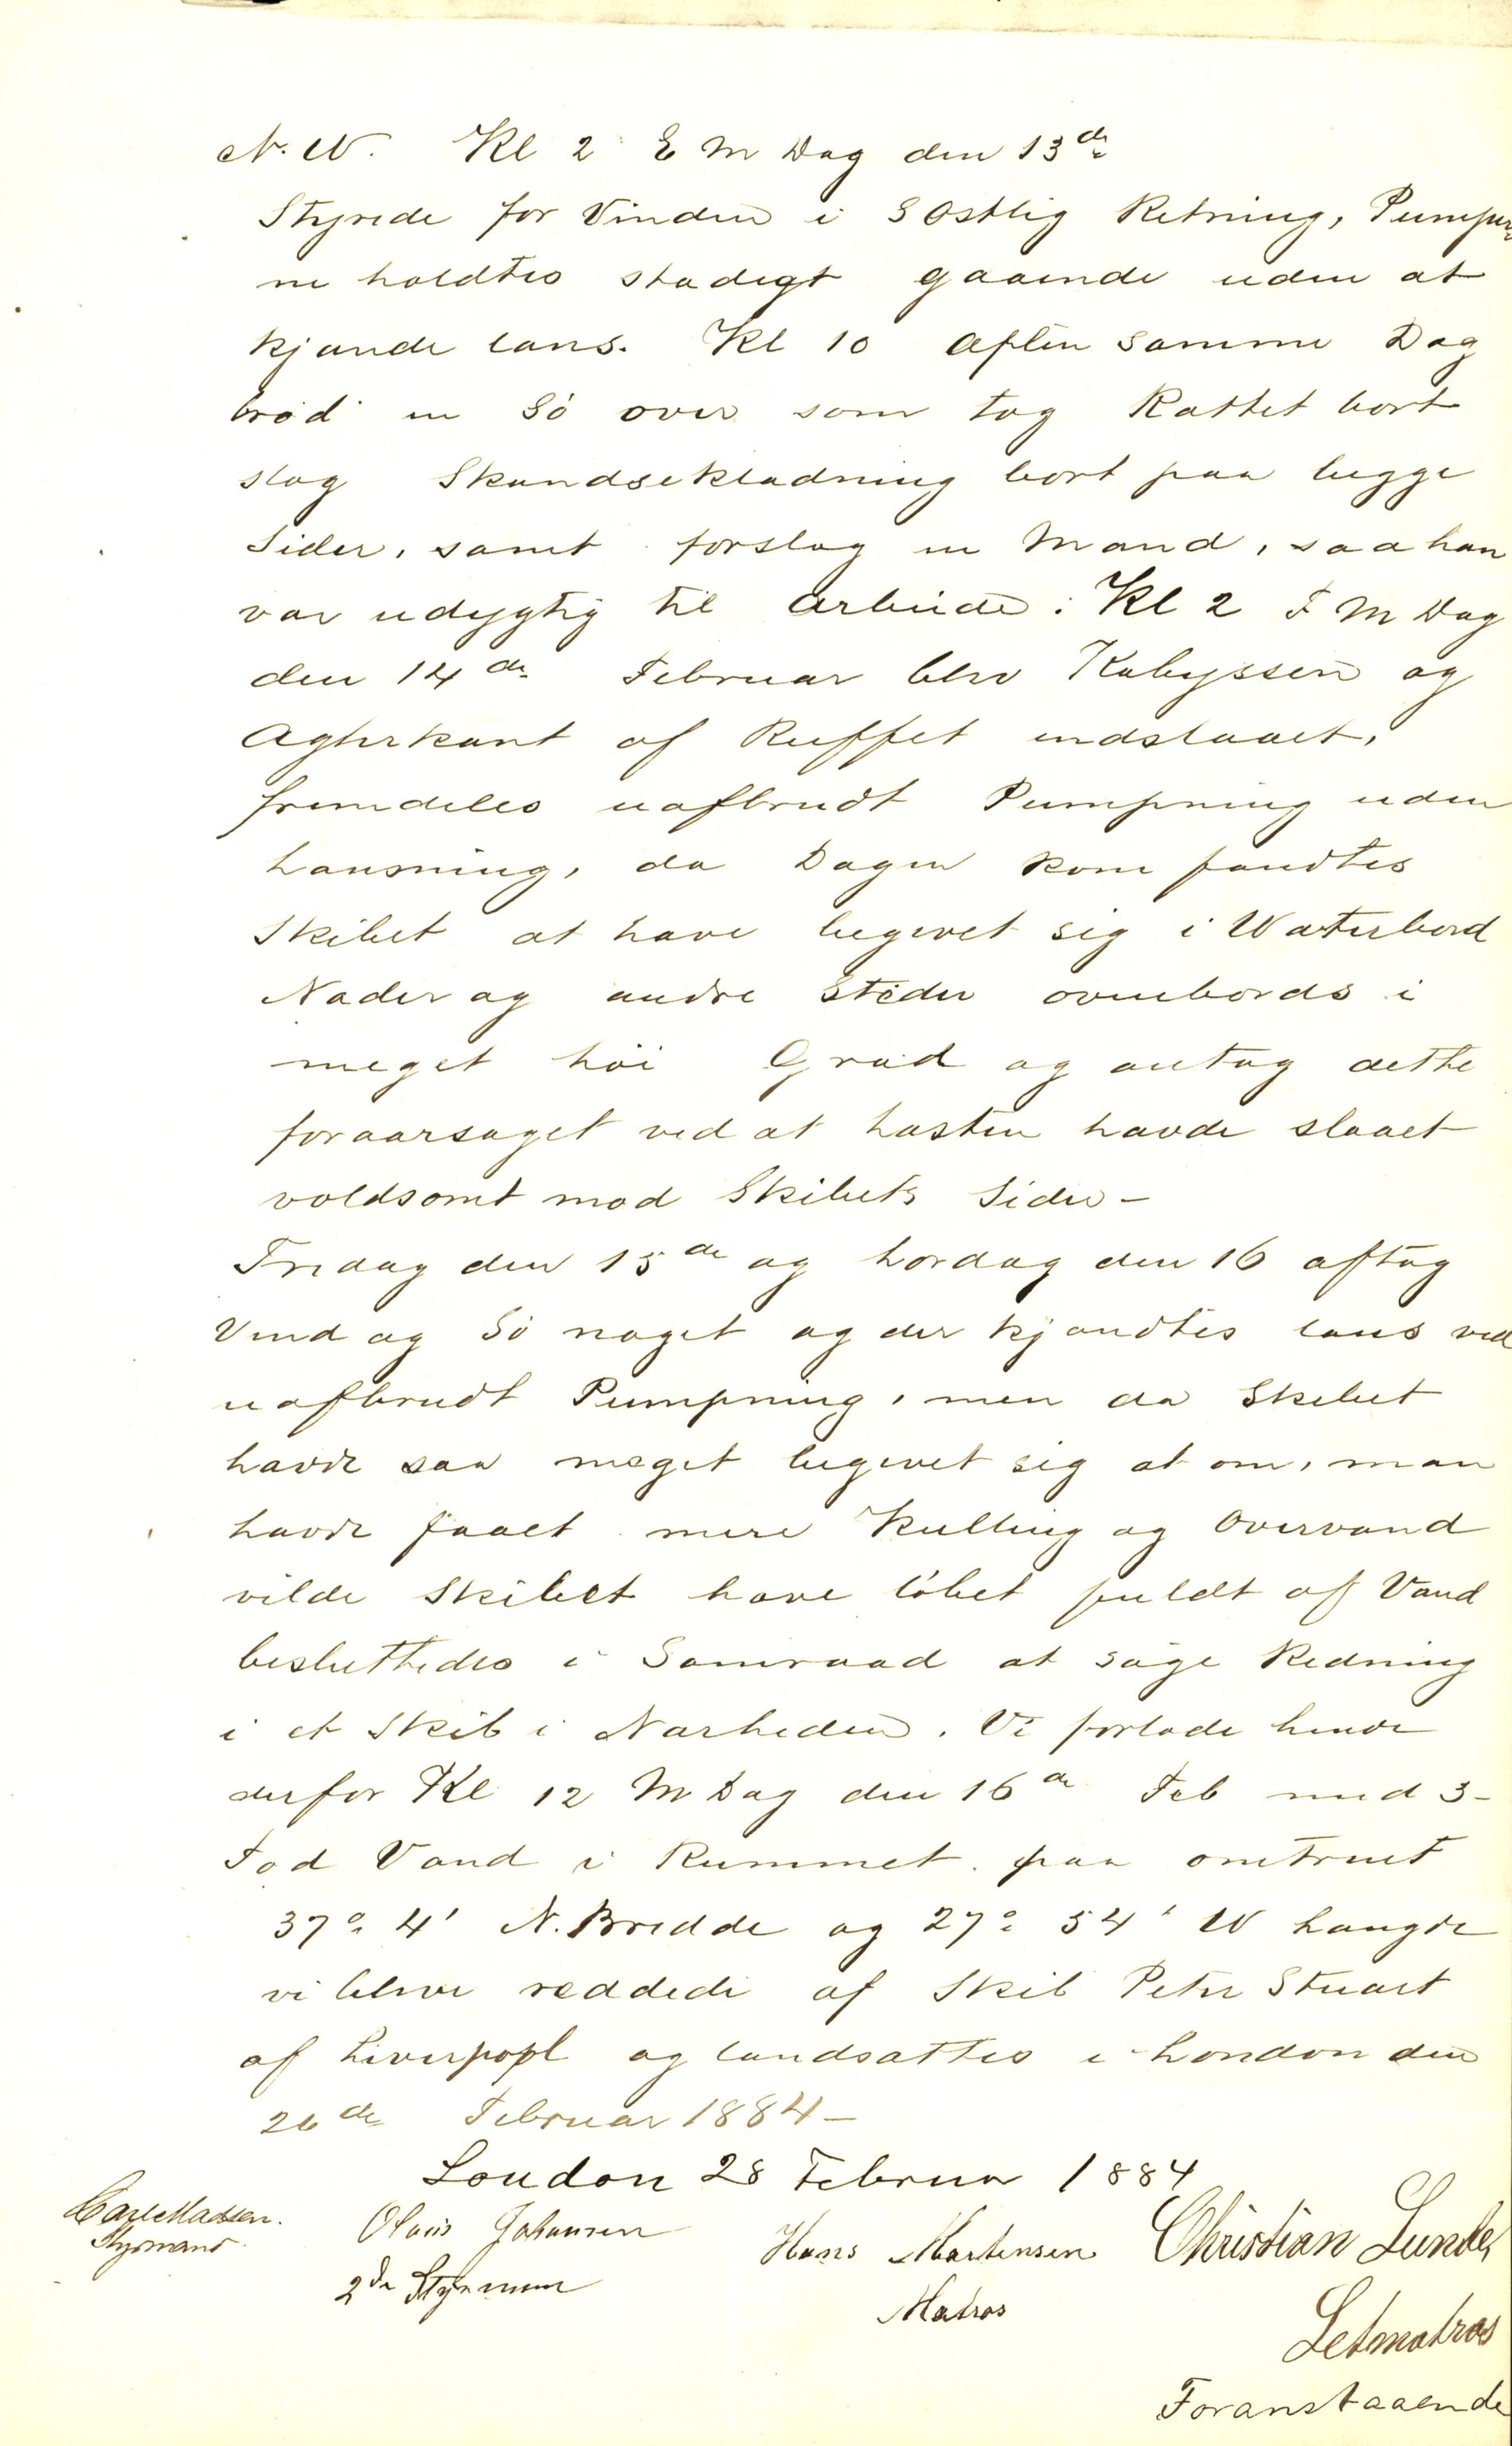 N.W. Kl 2 E M Dag den 13de
Styrede for Vinden i SOstlig Retning, Pumper
ne holdtes stadigt gaaende uden at
kjende lens. Kl 10 Aften samme Dag
brød en Sö over som tog Rattet bort
slog Skandseklædning bort paa begge
Sider, samt forslog en Mand, saa han
var udygtig til Arbeide: Kl 2 F M Dag
den 14de Februar blev Kabyssen og
Agterkant af Ruffet indslaaet,
fremdeles uafbrudt Pumpning uden
Lensning, da Dagen kom fandtes
Skibet at have begivet sig i Waterbord
Nader og andre Steder ovenbords i
meget höi Grad og antog dette
foraarsaget ved at Lasten havde slaaet
voldsomt mod Skibets Sider –
Fredag den 15de og Lördag den 16 aftog
Vind og Sö noget og der kjendtes lens ved
uafbrudt Pumpning, men da Skibet
havde saa meget begivet sig at om, man
havde faaet mere Kulling og Overvand
vilde Skibet have löbet fuldt af Vand
besluttedes i Samraad at söge Redning
i et Skib i Nærheden. Vi forlode hende
derfor Kl 12 M Dag den 16de Feb med 3–
Fod Vand i Rummet paa omtrent
37° 4' N. Bredde og 27° 54' W Længde
vi bleve reddede af Skib Peter Stuart
af Liverpopl og landsattes i London den
26de Februar 1884 –
London 28 Februar 1884
Carl Madsen. Olaus Johansen Hans Martensen Christian Lunde,
Styrmand. 2de Styrmann Matros Letmatros
Foranstaaende